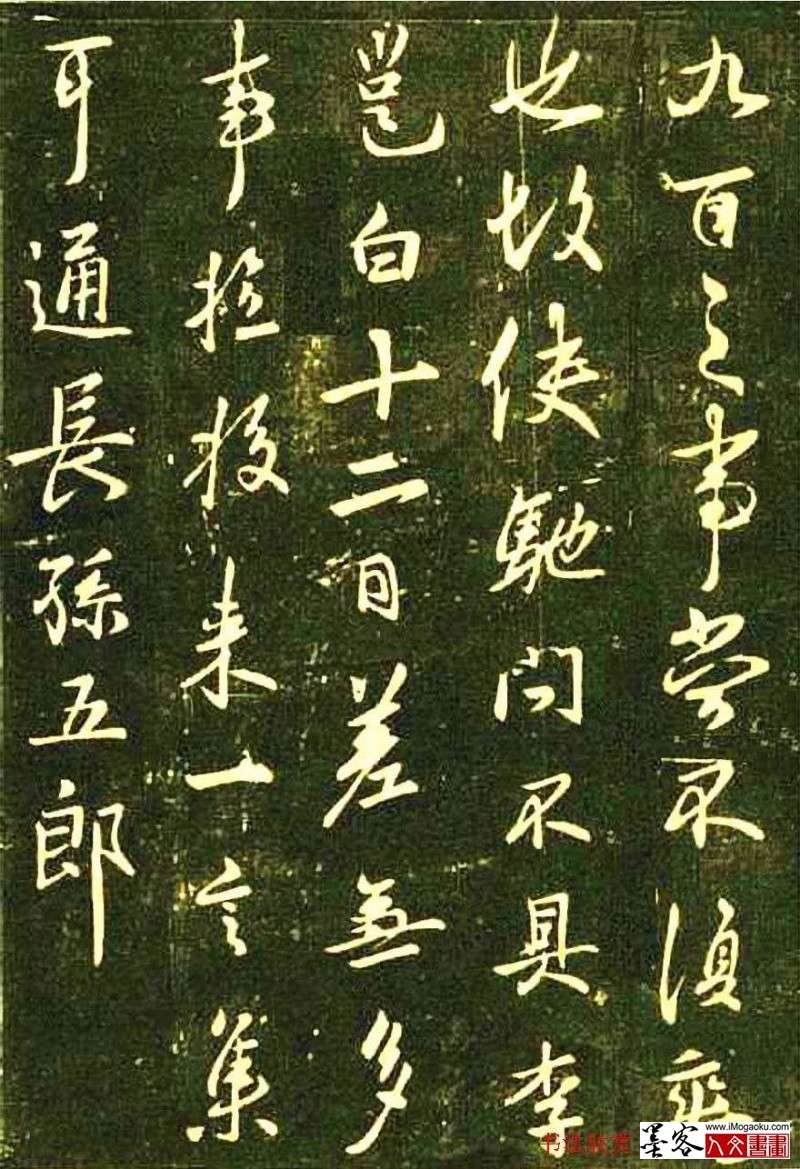 九百之事當不須
也故使馳問不具李
邕白十二日差無多
事来一言集
耳通長孫五郎
书法欣赏
墨客
www.iMogaoku.com
人文書畫